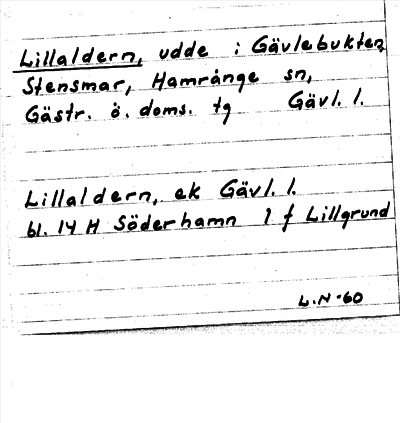 Lillaldern, udde i Gävlebukten,
Stensmar, Hamrånge sn,
Gästr. ö. doms. tg Gävl. l.
Lillaldern, ek Gävl. l.
bl. 14 H Söderhamn 1 f Lillgrund
L.N-60